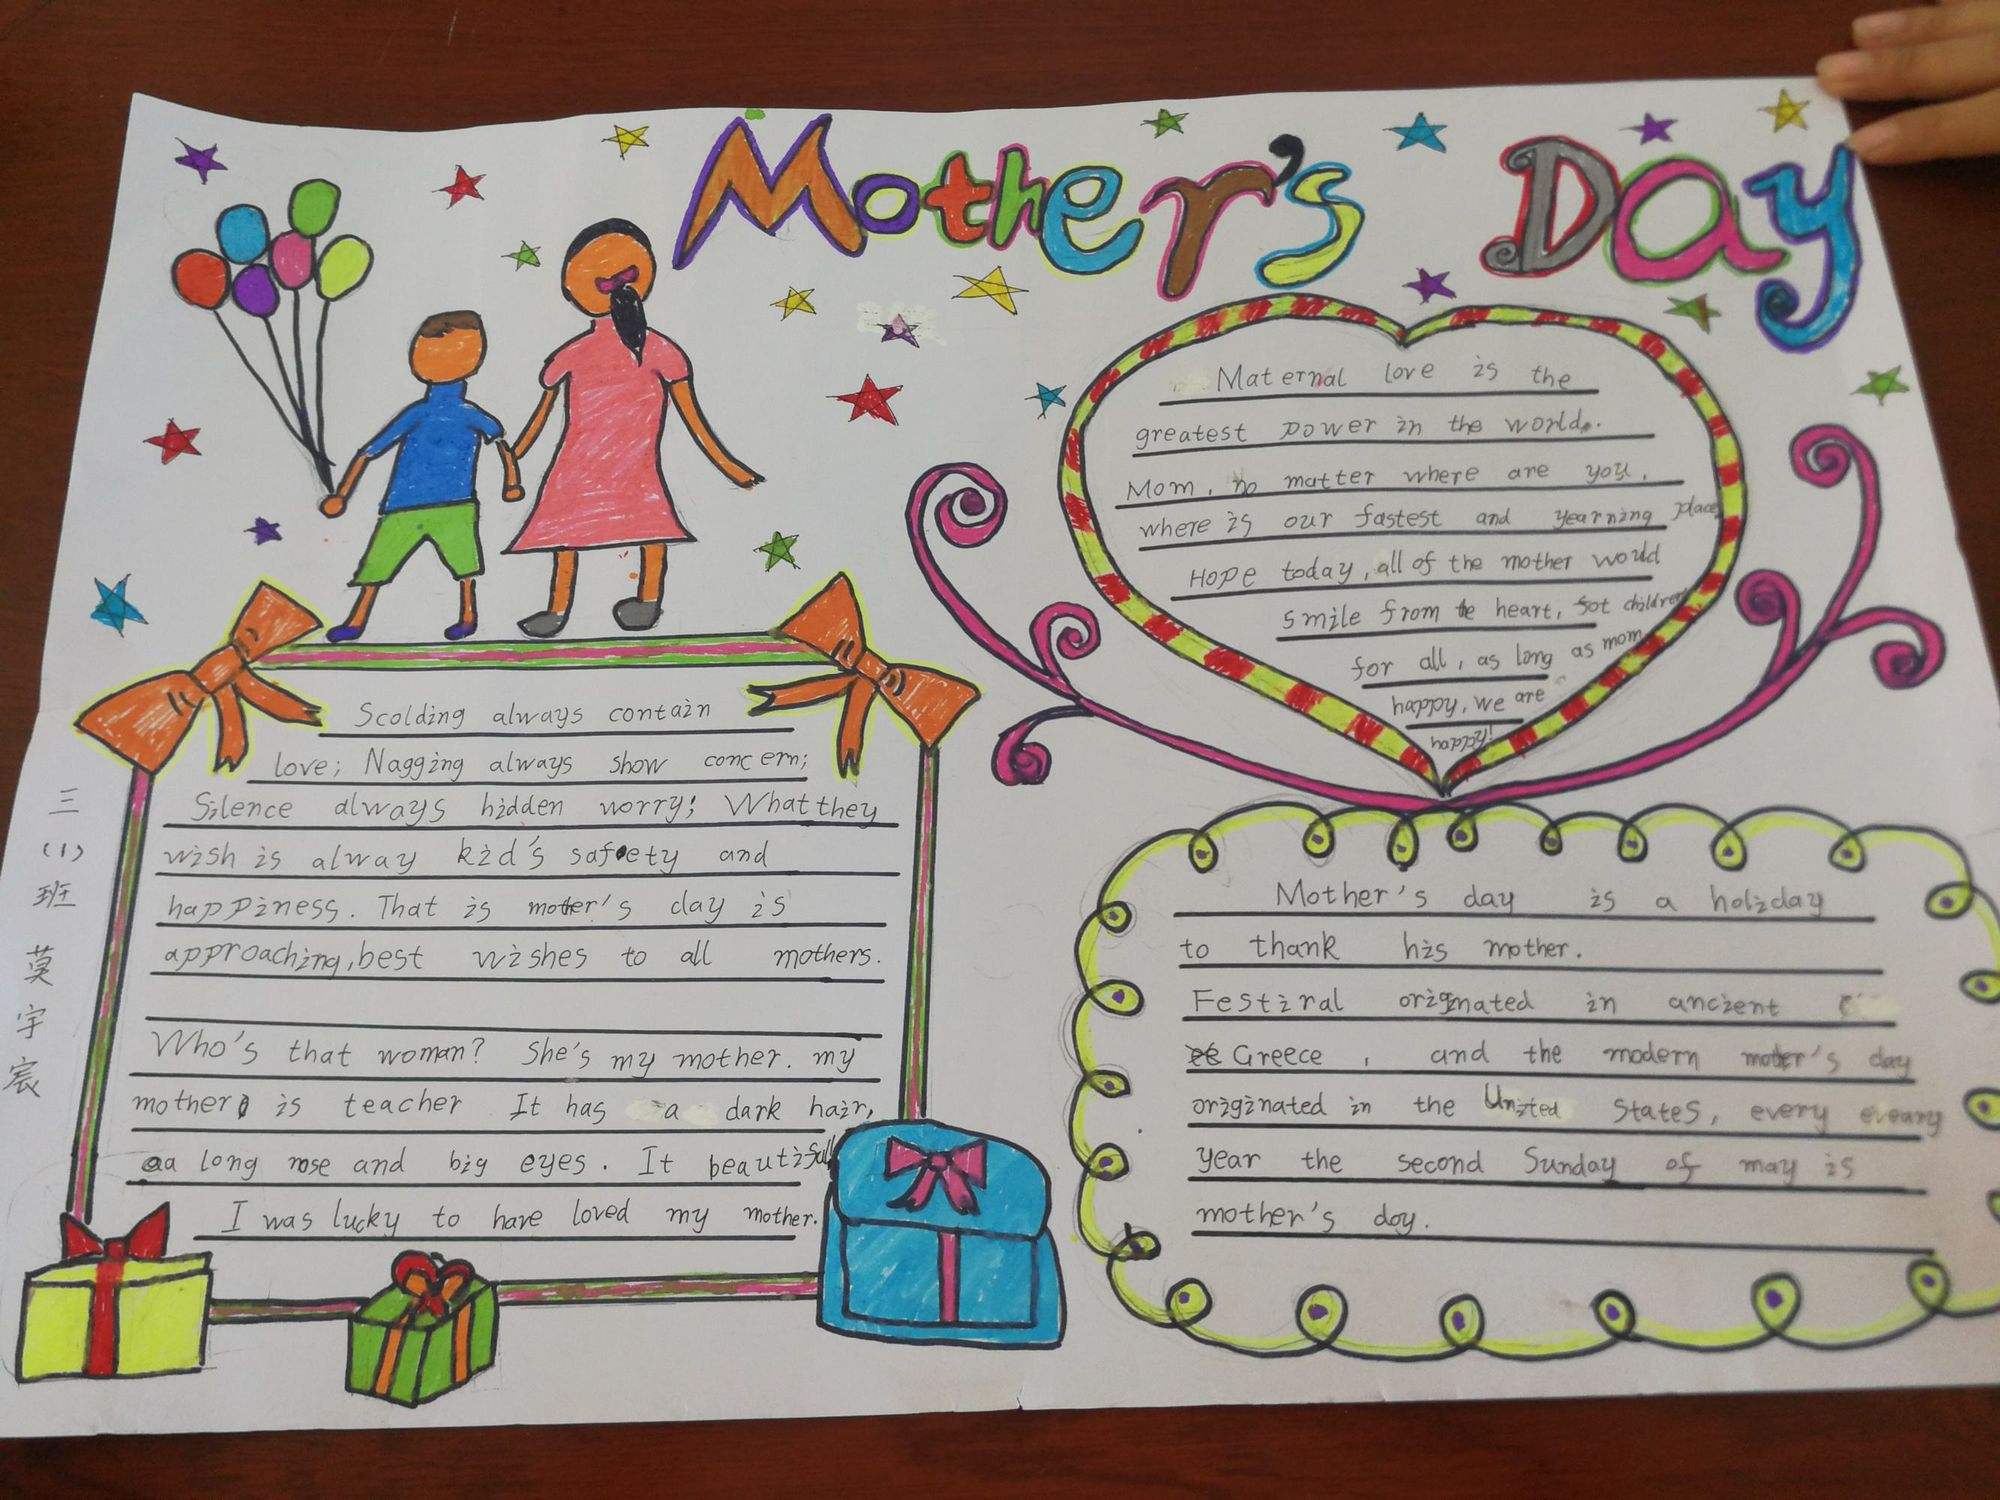 Mother's Day
Maternal love is the
greatest power in the world.
Mom, no matter where are you,
where is our fastest and yearning place
Hope today, all of the mother would
smile from the heart, fot children
for all, as long as mom
happy, we are
happy!
Scolding always contain
love; Nagging always show concern;
Silence always hidden worry; What they
wish is alway kid's safety and
happiness. That is moter's day is
approaching, best wishes to all mothers.
Who's that woman? She's my mother. my
mother is teacher It has a dark hair,
a long nose and big eyes. It beautifull
I was lucky to have loved my mother.
Mother's day is a holiday
to thank his mother.
Festiral originated in ancient
Greece , and the modern moter's day
originated in the United States, every eveary
year the second Sunday of may is
mother's doy.
三
(1)
班
莫
宇
宸